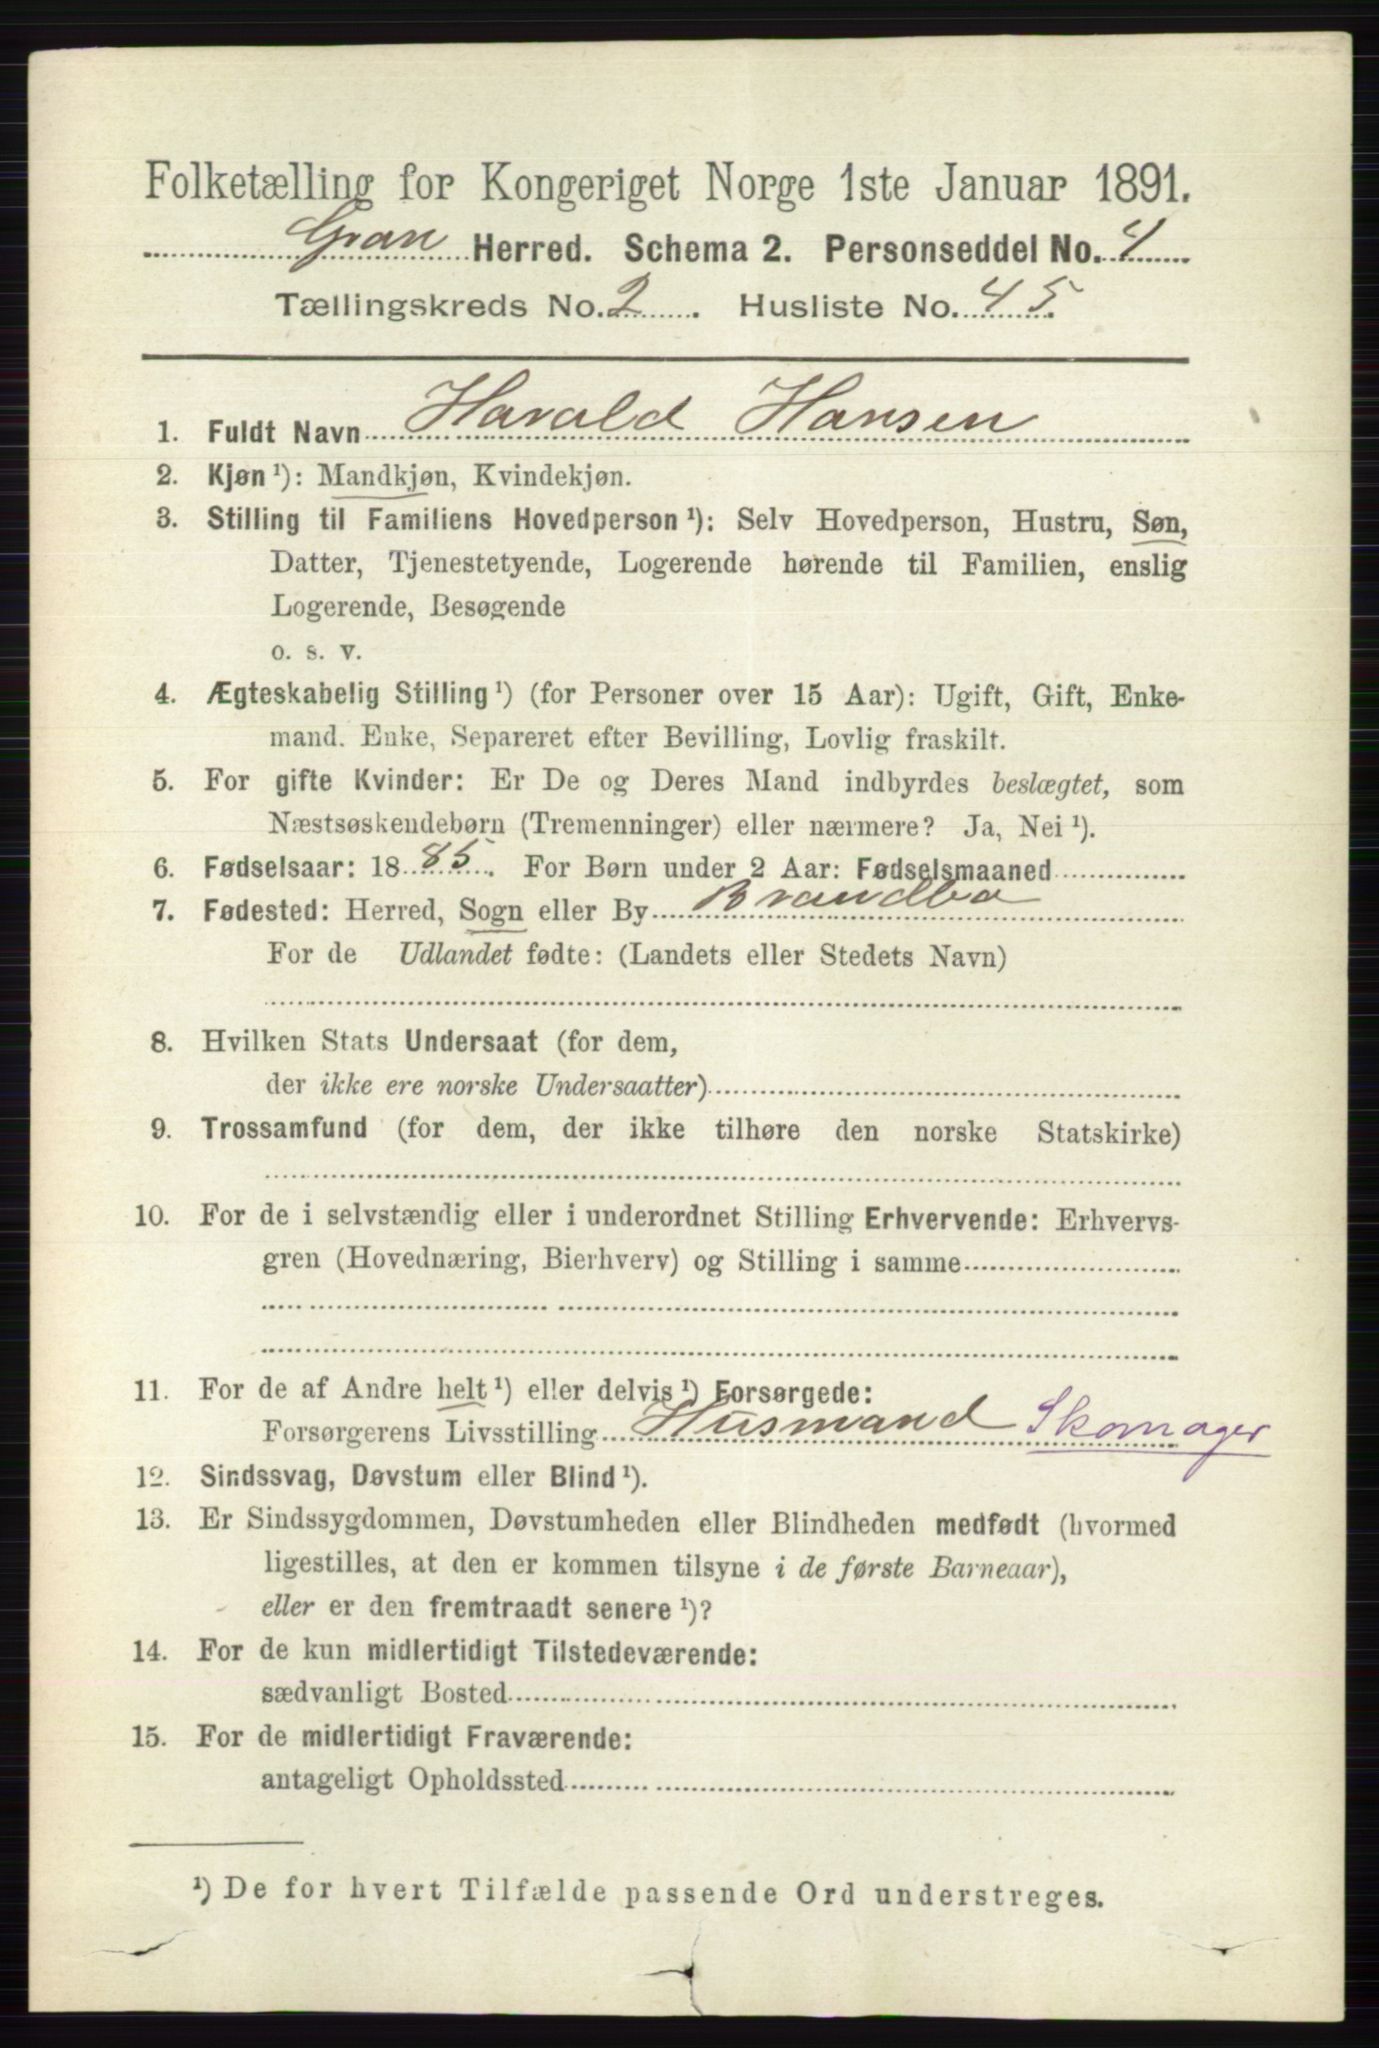 Folketælling for Kongeriget Norge 1ste Januar 1891.
Gran Herred. Schema 2. Personseddel No. 4
Tællingskreds No. 2. Husliste No. 45.
1. Fuldt Navn Harald Hansen
2. Kjøn ¹): Mandkjøn, Kvindekjøn.
3. Stilling til Familiens Hovedperson ¹): Selv Hovedperson, Hustru, Søn,
Datter, Tjenestetyende, Logerende hørende til Familien, enslig
Logerende, Besøgende
o. s. v.
4. Ægteskabelig Stilling ¹) (for Personer over 15 Aar): Ugift, Gift, Enke-
mand. Enke, Separeret efter Bevilling, Lovlig fraskilt.
5. For gifte Kvinder: Er De og Deres Mand indbyrdes beslægtet, som
Næstsøskendebørn (Tremenninger) eller nærmere? Ja, Nei ¹).
6. Fødselsaar: 1885. For Børn under 2 Aar: Fødselsmaaned
7. Fødested: Herred, Sogn eller By Brandbo
For de Udlandet fødte: (Landets eller Stedets Navn)
8. Hvilken Stats Undersaat (for dem,
der ikke ere norske Undersaatter)
9. Trossamfund (for dem, der ikke tilhøre den norske Statskirke)
10. For de i selvstændig eller i underordnet Stilling Erhvervende: Erhvervs-
gren (Hovednæring, Bierhverv) og Stilling i samme
11. For de af Andre helt ¹) eller delvis ¹) Forsørgede:
Forsørgerens Livsstilling Husmand Skomager
12. Sindssvag, Døvstum eller Blind ¹).
13. Er Sindssygdommen, Døvstumheden eller Blindheden medfødt (hvormed
ligestilles, at den er kommen tilsyne i de første Barneaar),
eller er den fremtraadt senere ¹)?
14. For de kun midlertidigt Tilstedeværende:
sædvanligt Bosted
15. For de midlertidigt Fraværende:
antageligt Opholdssted
¹) De for hvert Tilfælde passende Ord understreges.